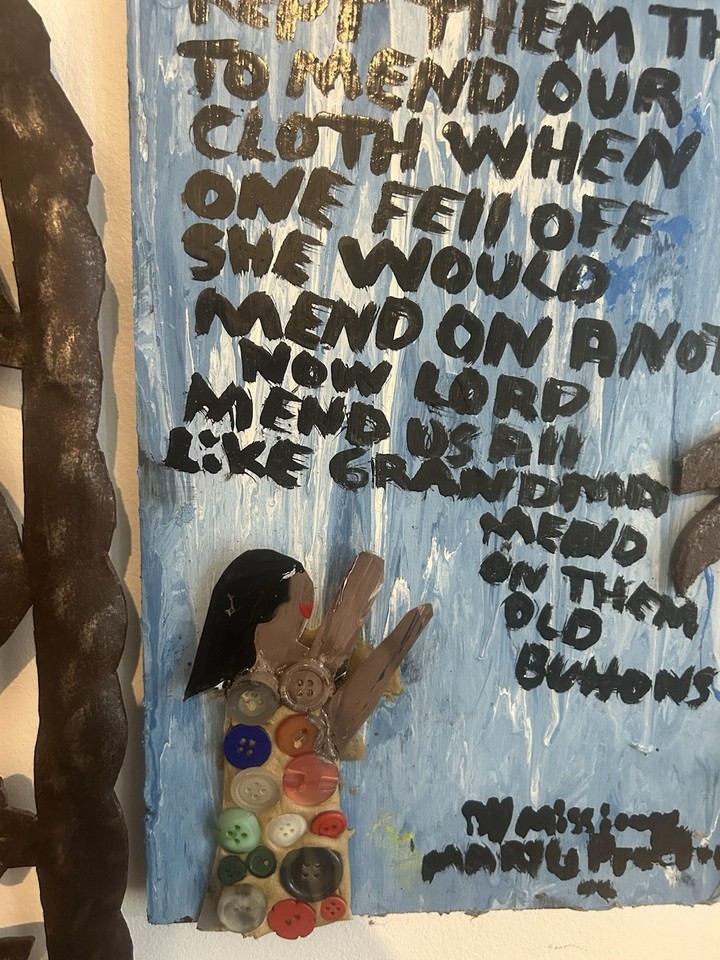 KEPT THEM TH
TO MEND OUR
CLOTH WHEN
ONE FEll OFF
SHE WOULD
MEND ON ANOT
NOW LORD
MEND US All
LiKE GRANDMA
MEND
ON THEM
OLD
BUttONS
Missionary
MARY L Proctor